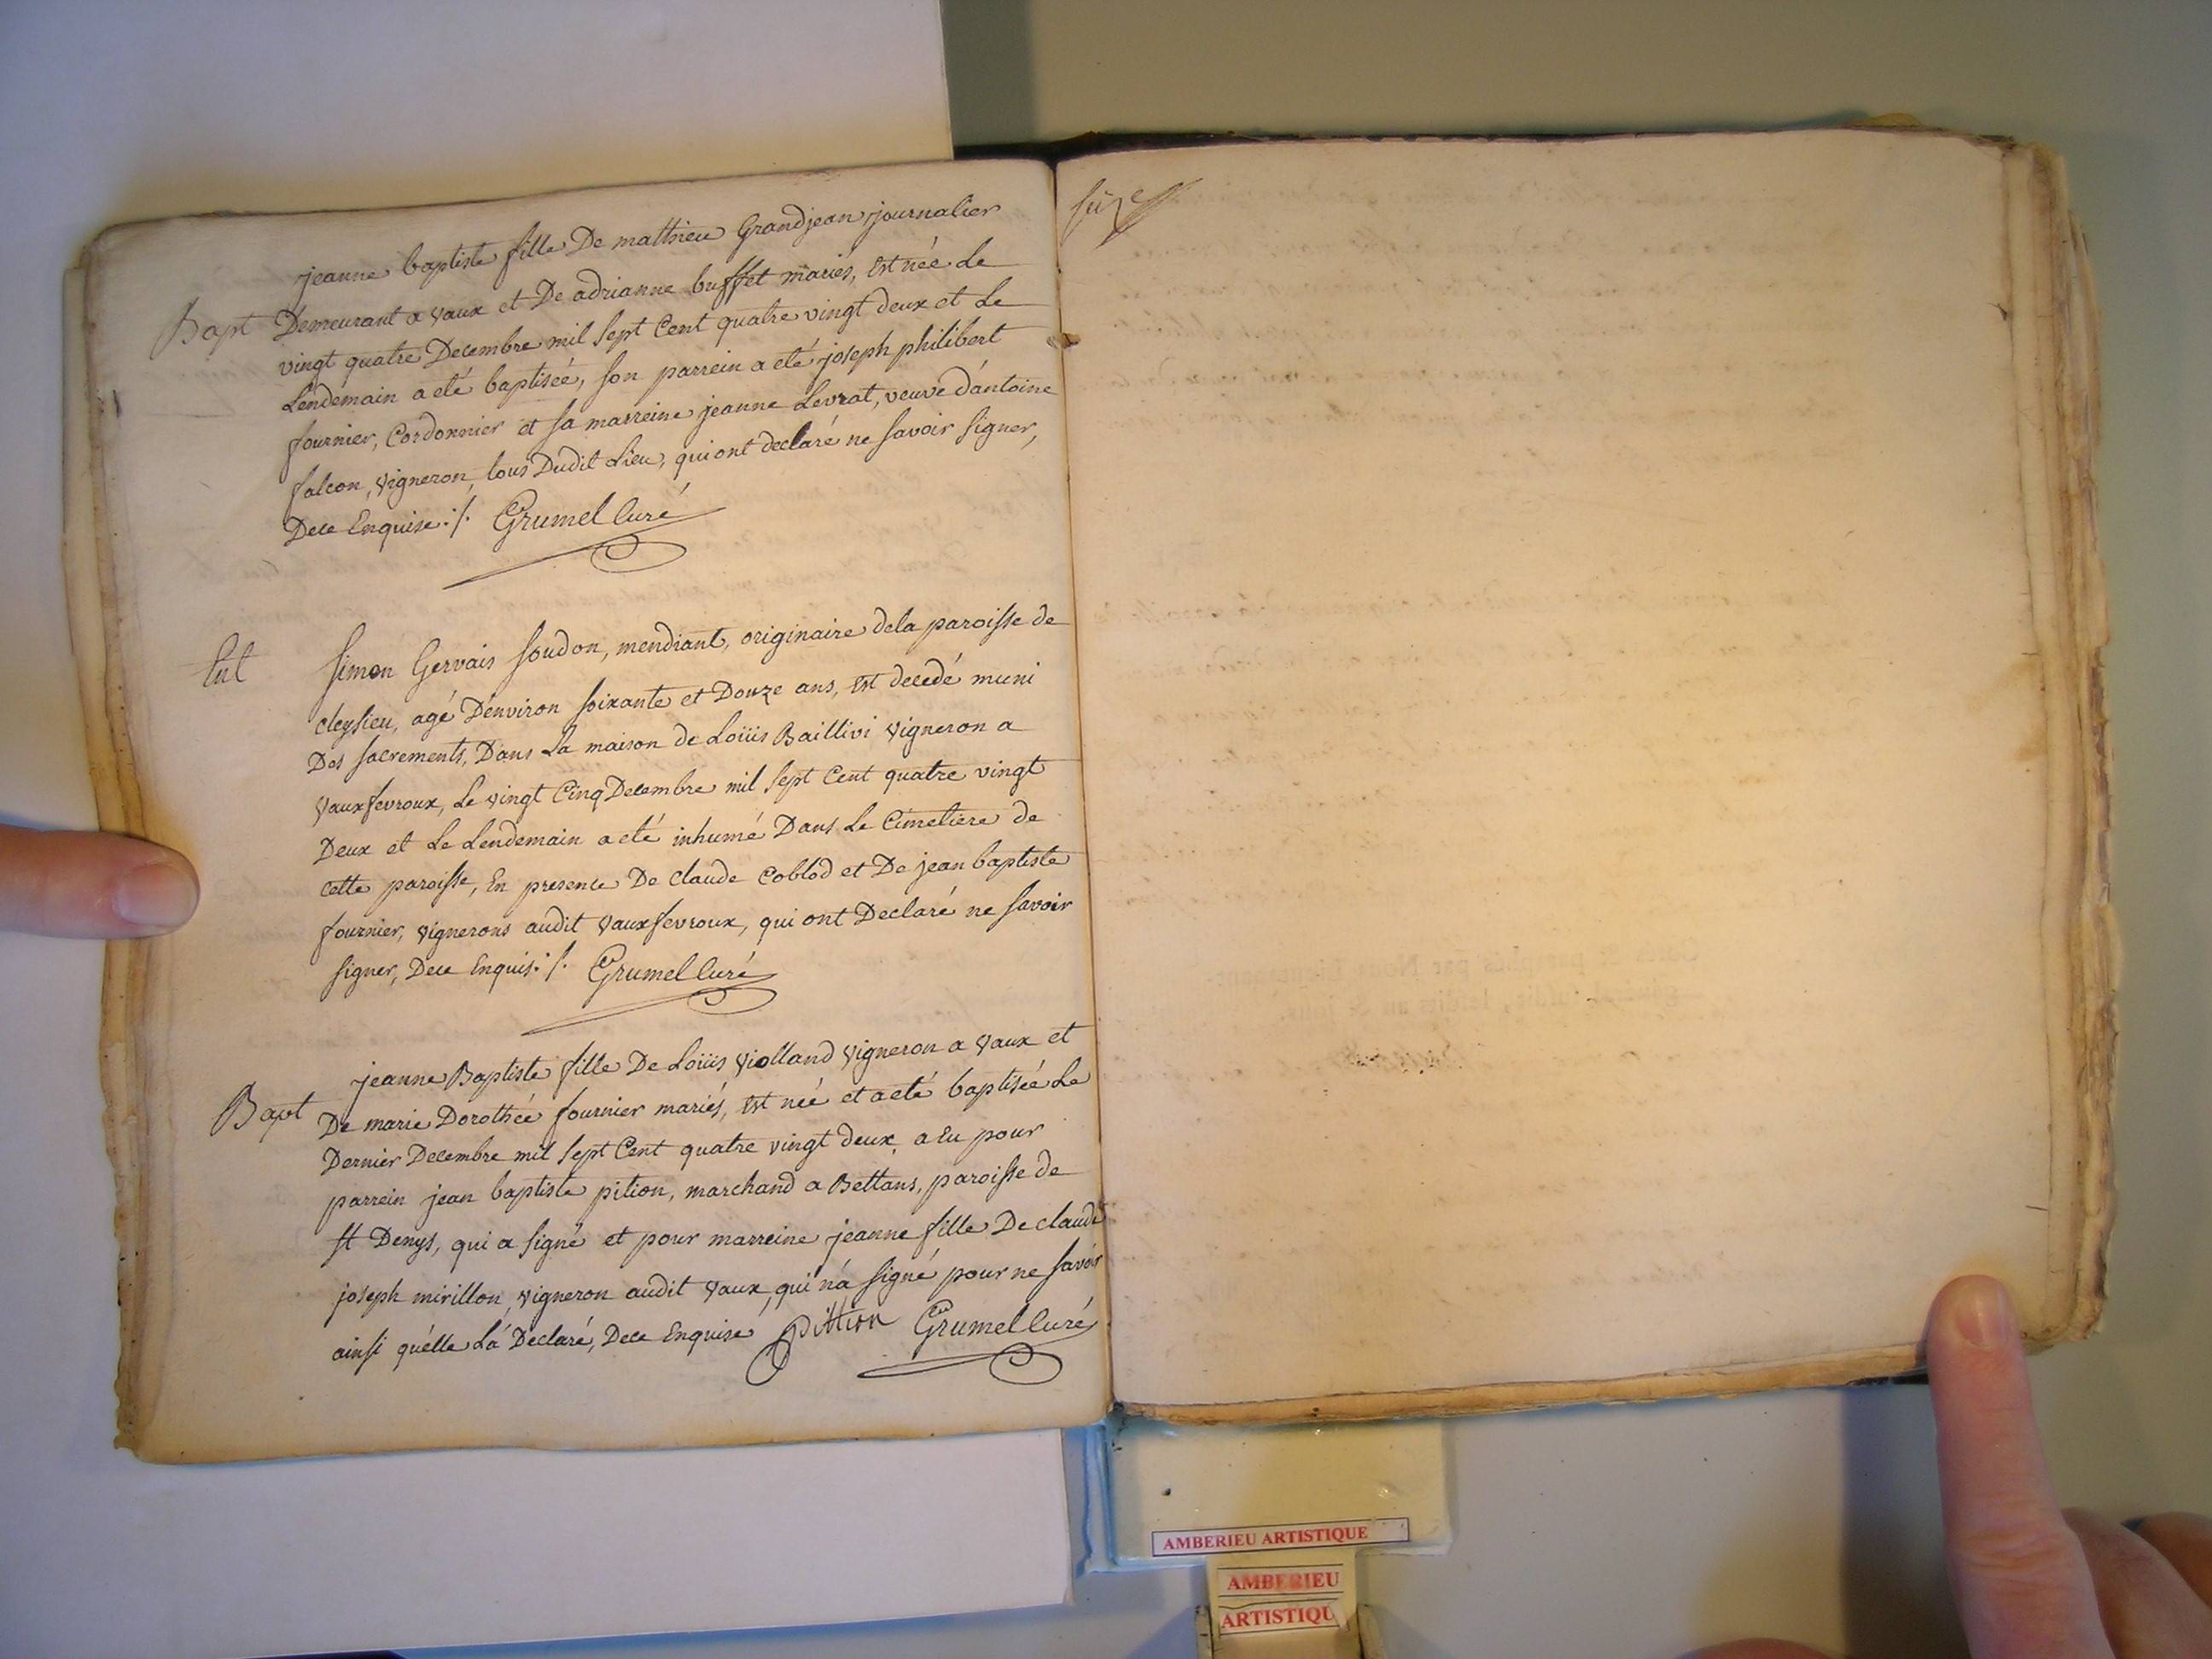 jeanne baptiste fille De mathieu Grandjean journalier
Bapt Demeurant a vaux et De adrianne buffet mariés, Est née Le
vingt quatre Decembre mil sept Cent quatre vingt deux et Le
Lendemain a eté baptisée, son parrein a eté joseph philibert
fournier, Cordonnier et sa marreine jeanne Levrat, veuve d'antoine
falcon, vigneron, tous Dudit Lieu, qui ont declaré ne savoir signer,
Dece Enquise ./. Grumel Curé
Ent Simon Gervais soudon, mendiant, originaire dela paroisse de
cleysieu, agé D'environ soixante et Douze ans, Est decedé muni
Des sacrements, Dans La maison de Loüis Baillivi vigneron a
vauxfevroux, Le vingt Cinq Decembre mil sept Cent quatre vingt
Deux et Le Lendemain a eté inhumé Dans Le Cimetiere de
cette paroisse, En presence De claude Coblod et De jean baptiste
fournier, vignerons audit vauxfevroux, qui ont Declaré ne savoir
signer, Dece Enquis ./. Grumel Curé
jeanne Baptiste fille De Loüis violland vigneron a vaux et
Bapt De marie Dorothée fournier mariés, Est née et a eté baptisée Le
Dernier Decembre mil sept Cent quatre vingt deux, a Eu pour
parrein jean baptiste pition, marchand a Bettans, paroisse de
st Denys, qui a signé et pour marreine jeanne fille De claude
joseph mirillon, vigneron audit vaux, qui n'a signé pour ne savoir
ainsi qu'elle L'a Declaré, Dece Enquise Pittion Grumel Curé
seize
AMBERIEU ARTISTIQUE
AMBERIEU
ARTISTIQU